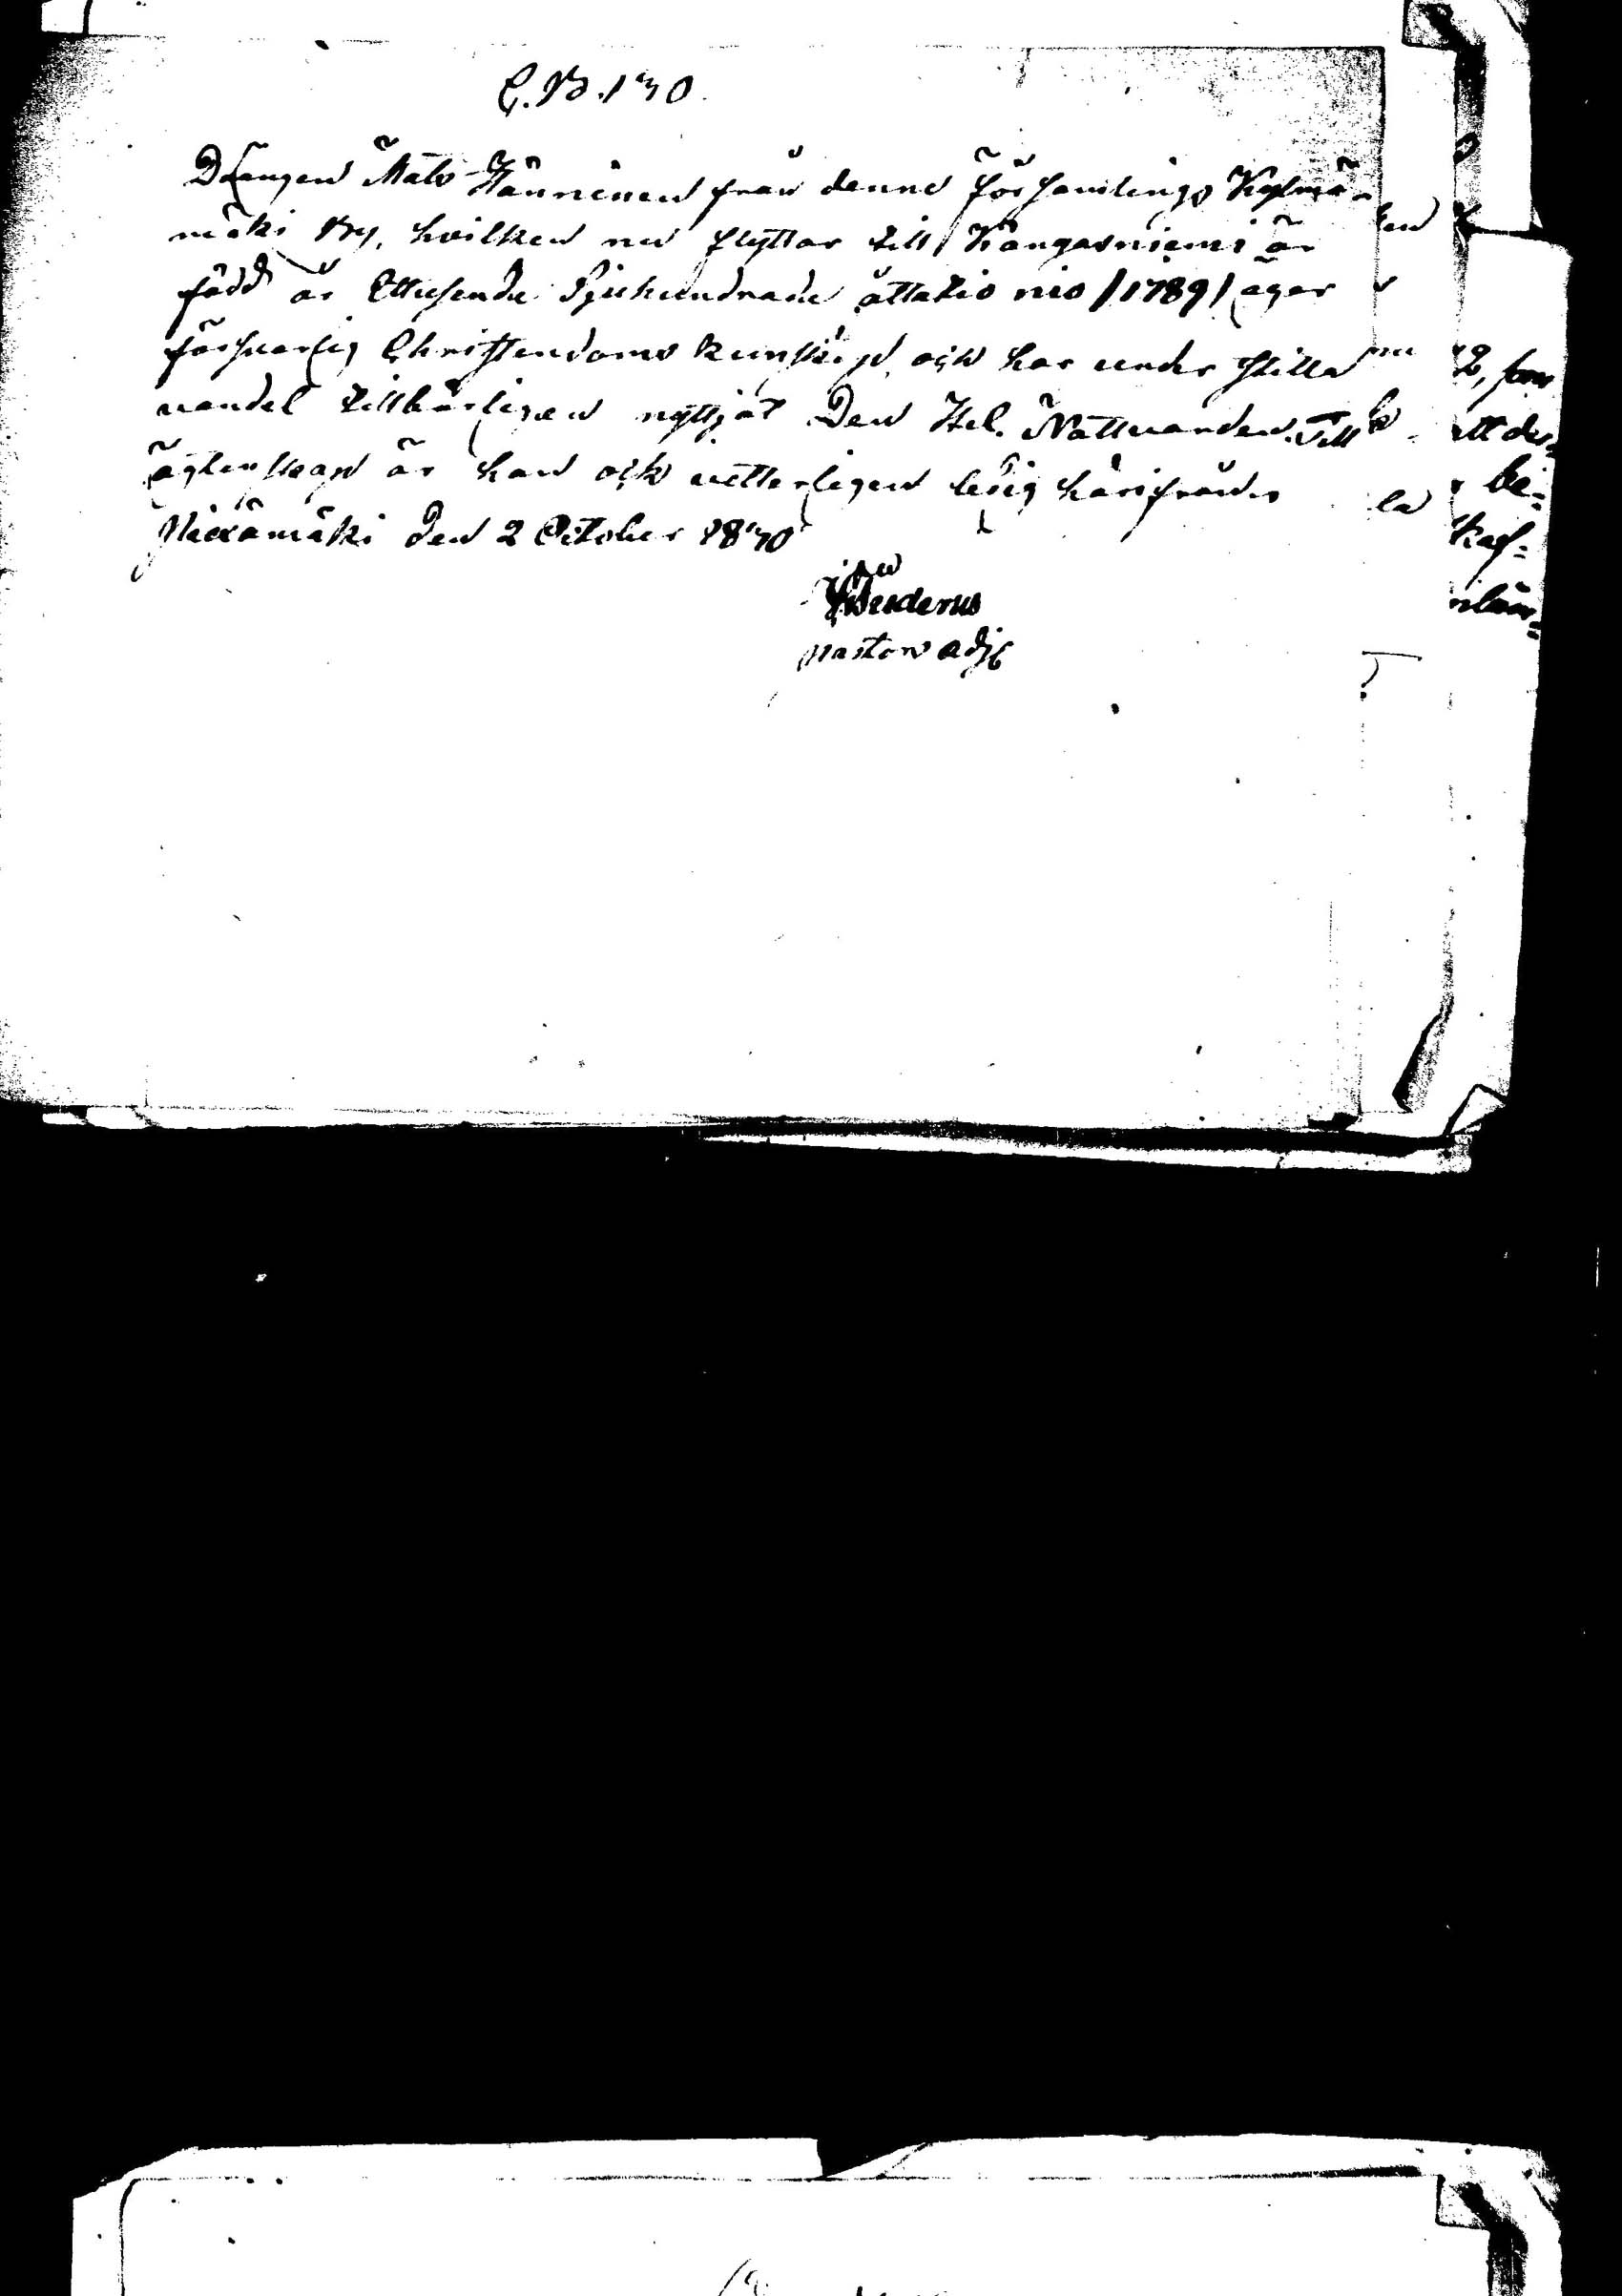 C.B. 130.
Drängen Mats Hänninen från denne församlings Kylmä-
mäki By, hvilken nu flyttar till Kangasniemi är
född år Ettusende Sjuhundrade åttatio nio /1789/ äger
försvarlig Christendoms kunskap, och har under stilla
vandel tillbörligen nyttjat Den Hel. Nattvarden. Till
ägtenskap är han och vetterligen ledig härifrån
den 2 October 1830
pastors adj: